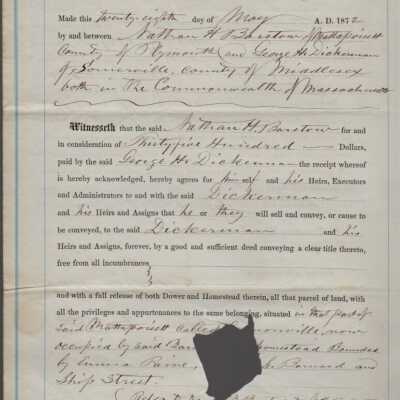 Made this twenty eighth day of May A. D. 1872
by and between Nathan H Barstow of Mattapoisett
County of Plymouth and George H. Dickerman
of Somerville, County of Middlesex
both in The Commonwealth of Massachusetts
Witnesseth that the said Nathan H. Barstow for and
in consideration of Thirty five Hundred Dollars,
paid by the said George H. Dickerman the receipt whereof
is hereby acknowledged, hereby agrees for himself and his Heirs, Executors
and Administrators to and with the said Dickerman
and his Heirs and Assigns that he or they will sell and convey, or cause to
be conveyed, to the said Dickerman and his
Heirs and Assigns, forever, by a good and sufficient deed conveying a clear title thereto,
free from all incumbrances
and with a full release of both Dower and Homestead therein, all that parcel of land, with
all the privileges and appurtenances to the same belonging, situated in that part of
said Mattapoisett Called now
occupied by said Homestead Bounded
by Barnard and
Ship Street.